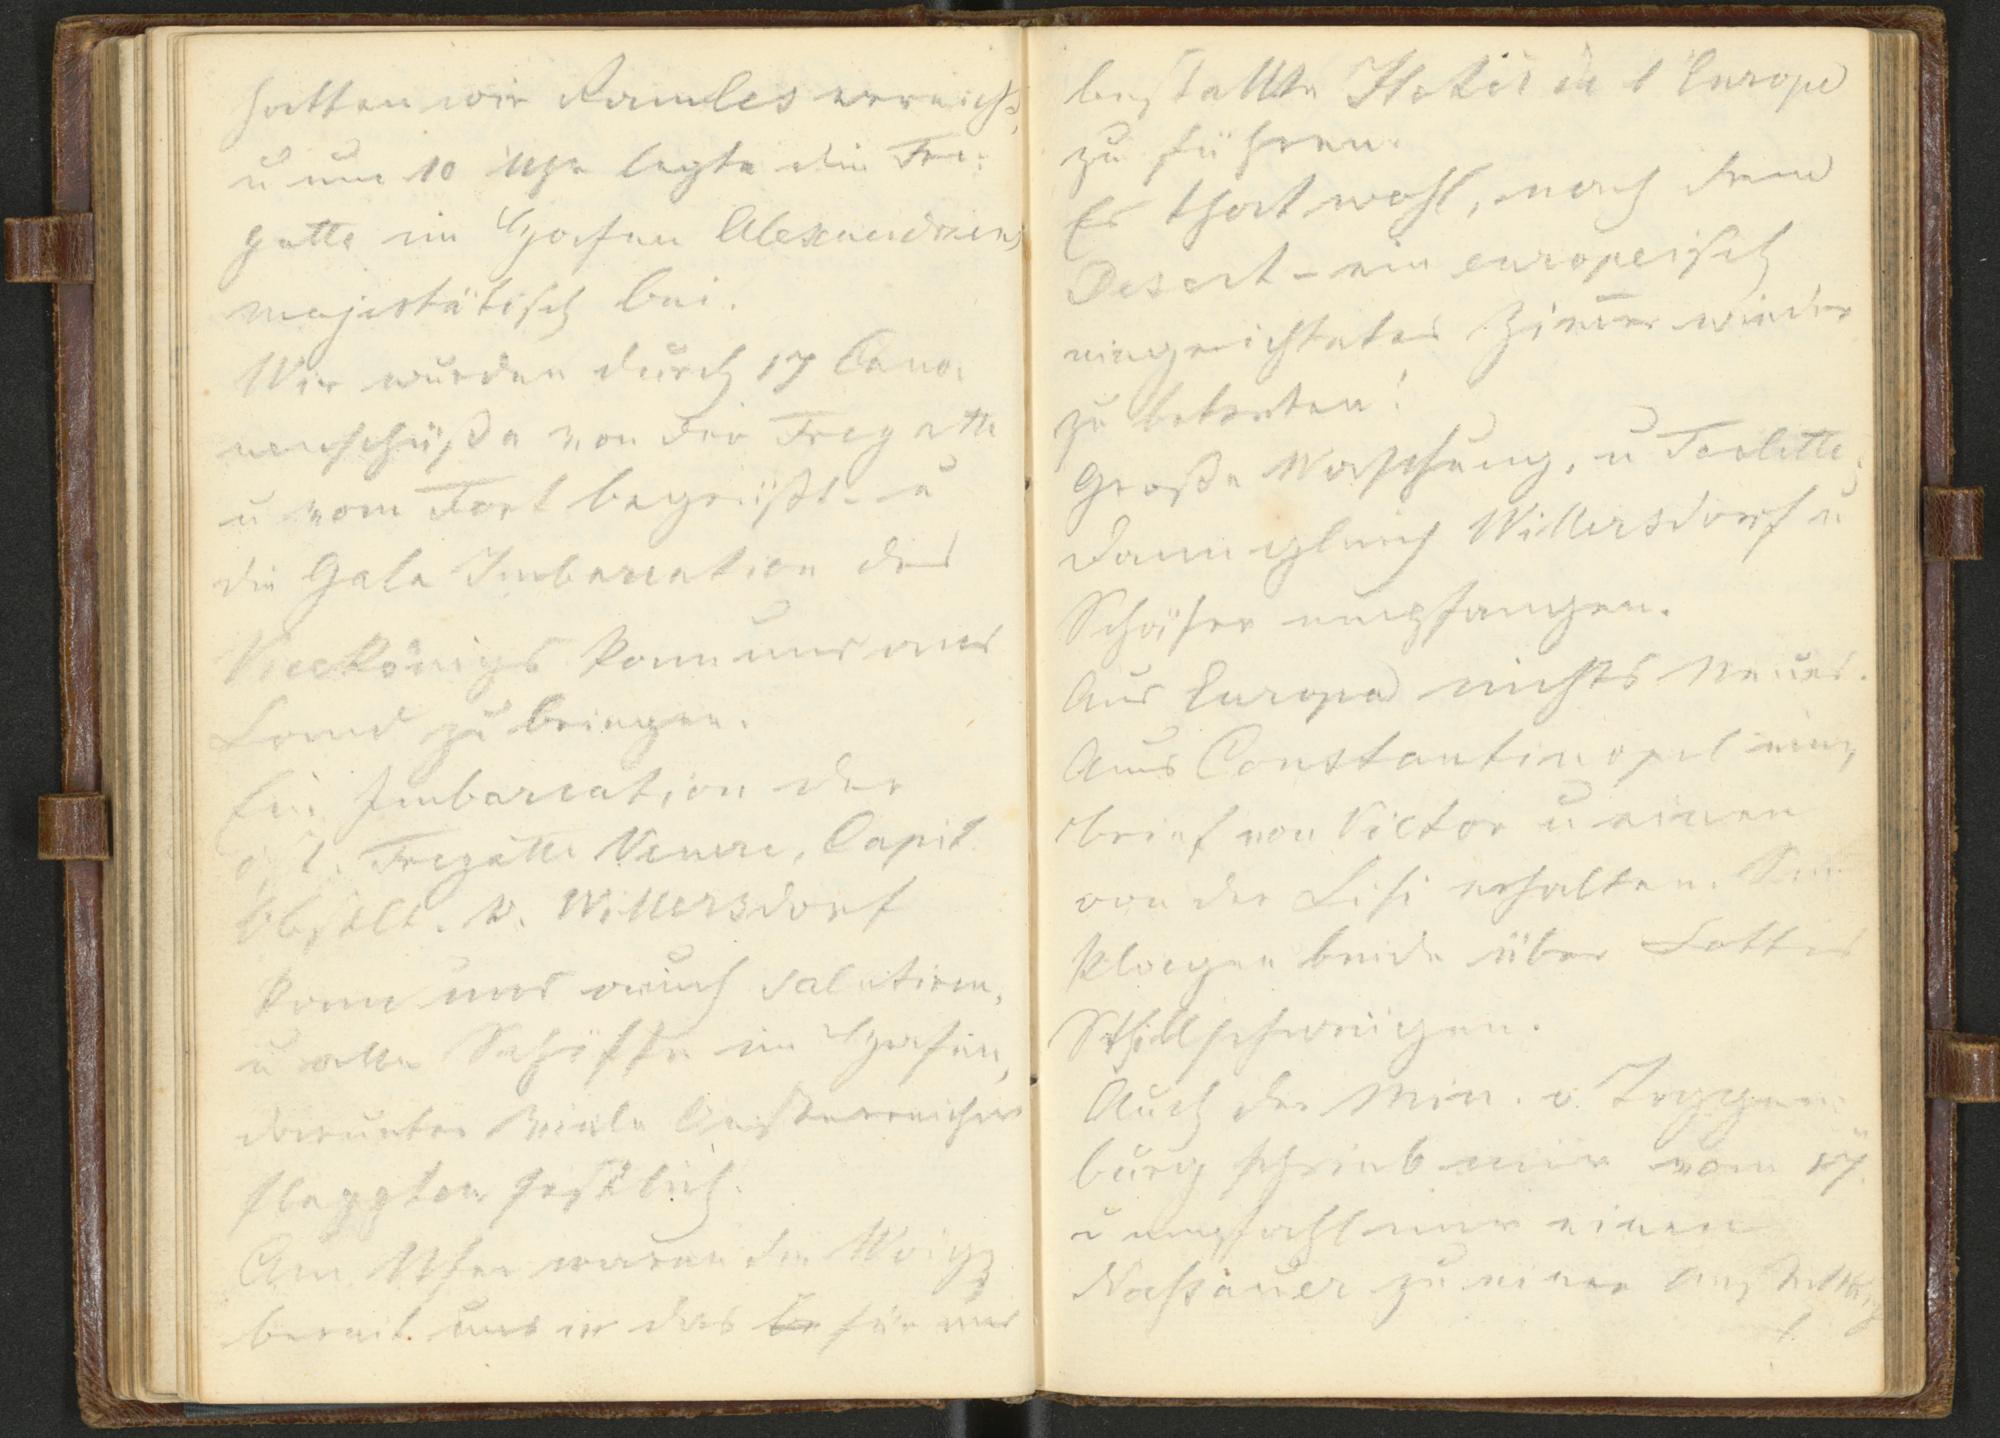 hatten wir Ramles erreicht,
u um 10 Uhr legte die Fre-
gatte im Hafen Alexandriens
majestätisch bei.
Wir wurden durch 17 Cano-
nenschüße von der Fregatte
u vom Fort begrüßt- u
die Gala Imbarcation des
Vicekönigs kam uns ans
Land zu bringen.
Ein Imbarcation der
Fregatte Venere, Capit.
v. Willersdorf
kam uns auch salutiren,
u alle Schiffe im Hafen,
darunter viele Oesterreicher
flaggten festlich.
Am Ufer waren die Wäg
bereit uns in das für uns
bestellte Hotel de l'Europe
zu führen.
Es that wohl, nach dem
Desert - ein europeisch
eingerichtetes Zimer wieder
zu betreten!
Große Waschung, u Toilette,
dann gleich Willersdorf u
Schäfer empfangen.
Aus Europa nichts Neues.
Aus Constantinopel einen
brief von Victor u einen
von der Lisi erhalten. Sie
klagen beide über Lottis
Stillschweigen.
Auch der Min. v. Toggen-
burg schrieb mir vom 17.
u empfahl mir einen
Nassauer zu einer Anstellung